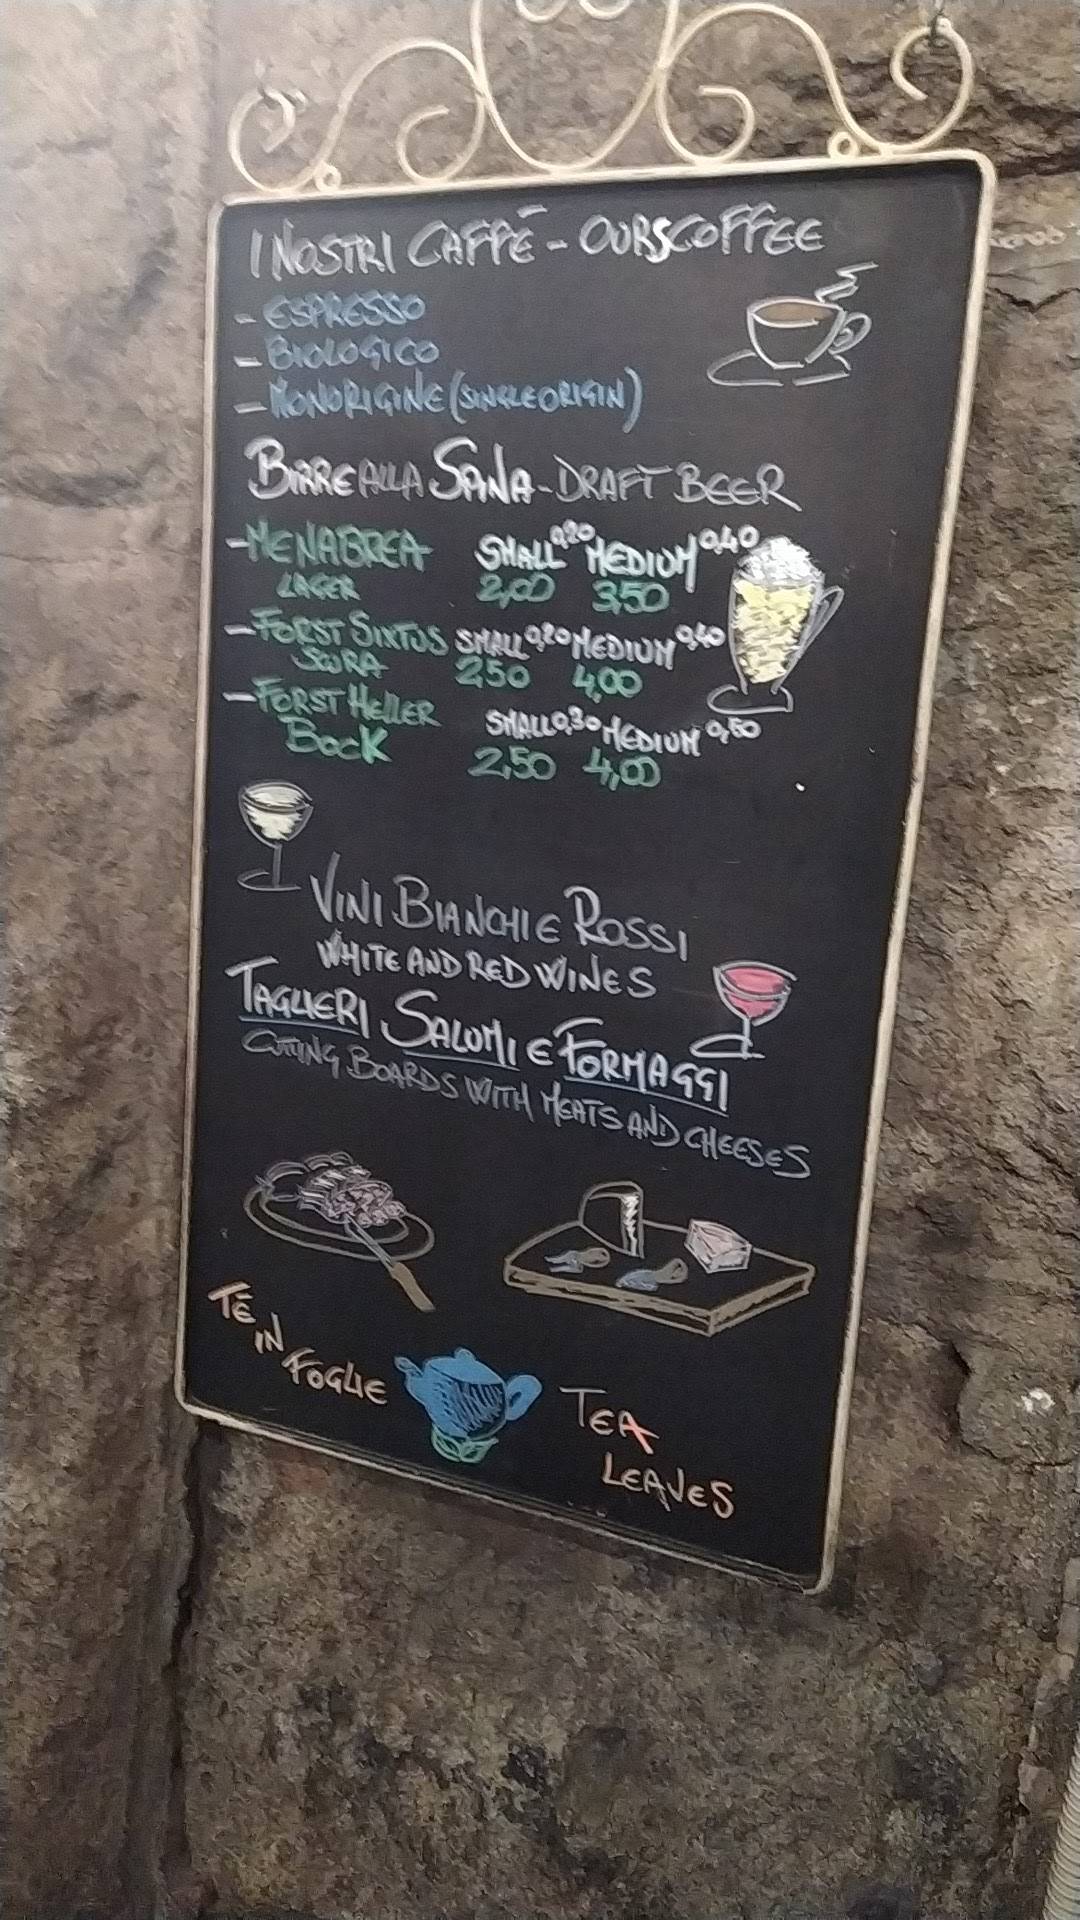 I NOSTRI CAFFÈ - OURSCOFFEE
- ESPRESSO
- BIOLOGICO
- MONORIGINE (SINGLE ORIGIN)
BIRRE ALLA SPINA - DRAFT BEER
- MENABREA SMALL 0,20 MEDIUM 0,40
LAGER 2,00 3,50
- FORST SIXTUS SMALL 0,20 MEDIUM 0,40
SCURA 2,50 4,00
- FORST HELLER SMALL 0,30 MEDIUM 0,50
BOCK 2,50 4,00
VINI BIANCHI E ROSSI
WHITE AND RED WINES
TAGLIERI SALUMI E FORMAGGI
CUTING BOARDS WITH MEATS AND CHEESES
TÈ
IN
FOGLIE
TEA
LEAVES